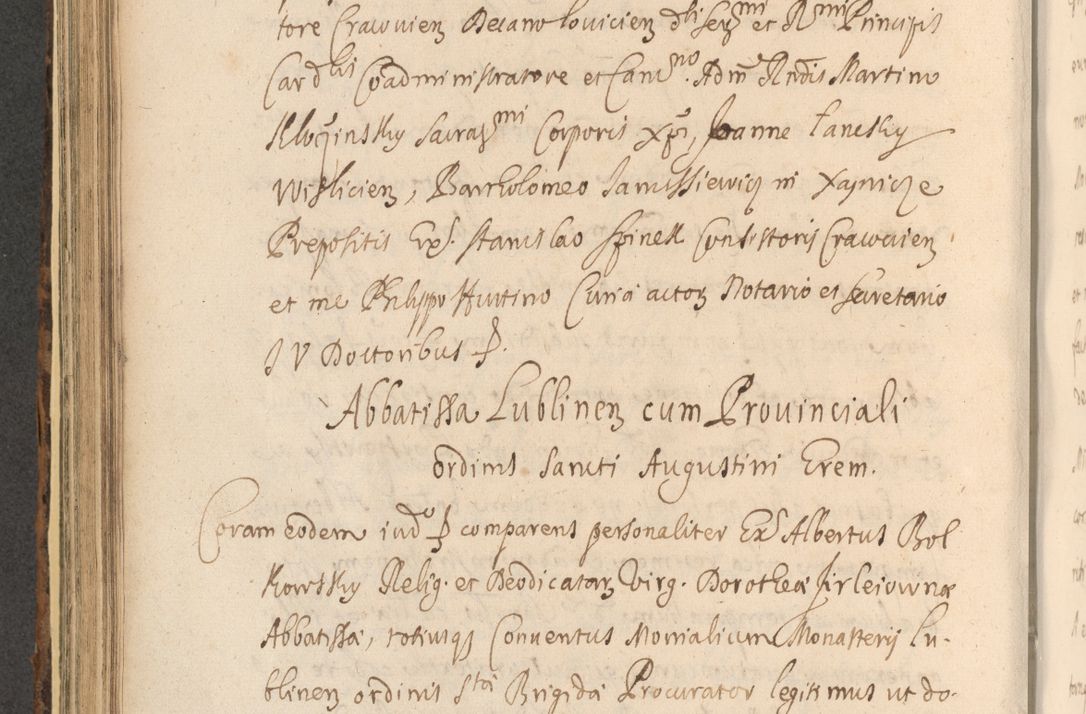 tore Cracovien Decano Lovicien dli Sermi et Rmi Principis
Cardlis Coadministratore et Canco. Adm Rndis Martino
Kloczensky Sacratmi Corporis Xpi, Joanne Lancsky
Wisliciem, Bartholomeo Janussiewicz in Xaznicze
Prepositis Exs. Stanislao Spinek Consistorij Cracovien
et me Philippo Huttino Curia actor Notario et Secretario
IV Doctoribus P.
Abbatissa Lublinen cum Prouinciali
ordinis Sancti Augustini Erem.
Coram eodem iudo P comparens personaliter Exs Albertus Bol
kowsky Relig. et Deodicatar Virg. Dorotheæ Firleiownæ
Abbatissæ, totiusqz Conuentus Monialium Monasterij Lu-
blinen ordinis Stæ Brigidæ Procurator legitimus ut do-